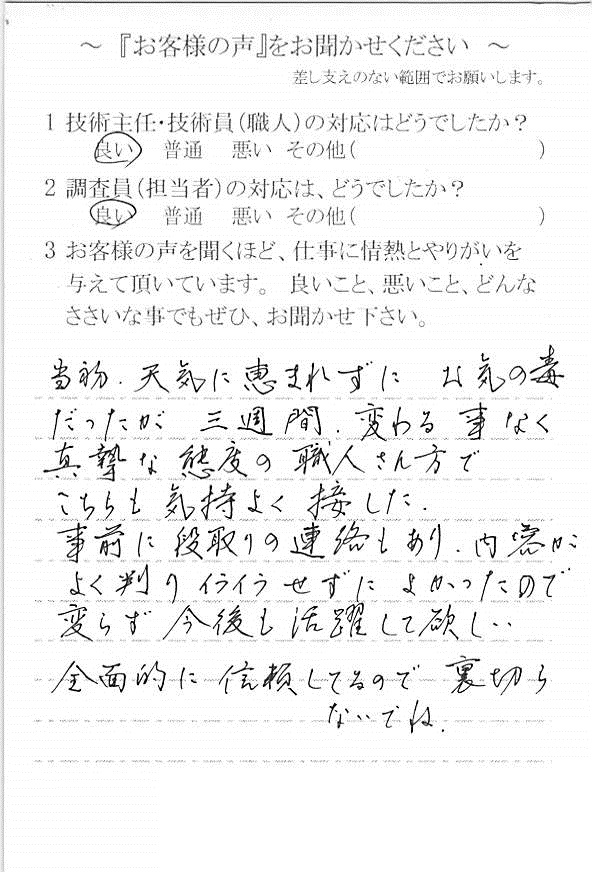 ～『お客様の声』をお聞かせください ～
差し支えのない範囲でお願いします。
1 技術主任・技術員(職人)の対応はどうでしたか?
良い 普通 悪い その他( )
2 調査員(担当者)の対応は、どうでしたか?
良い 普通 悪い その他( )
3 お客様の声を聞くほど、仕事に情熱とやりがいを
与えて頂いています。 良いこと、悪いこと、どんな
ささいな事でもぜひ、お聞かせ下さい。
当初.天気に恵まれずに お気の毒
だったが 三週間.変わる事なく
真摯な態度の職人さん方で
こちらも気持よく接した.
事前に段取りの連絡もあり.内容が
よく判りイライラせずによかったので
変らず今後も活躍して欲しい
全面的に信頼してるので裏切ら
ないでね.